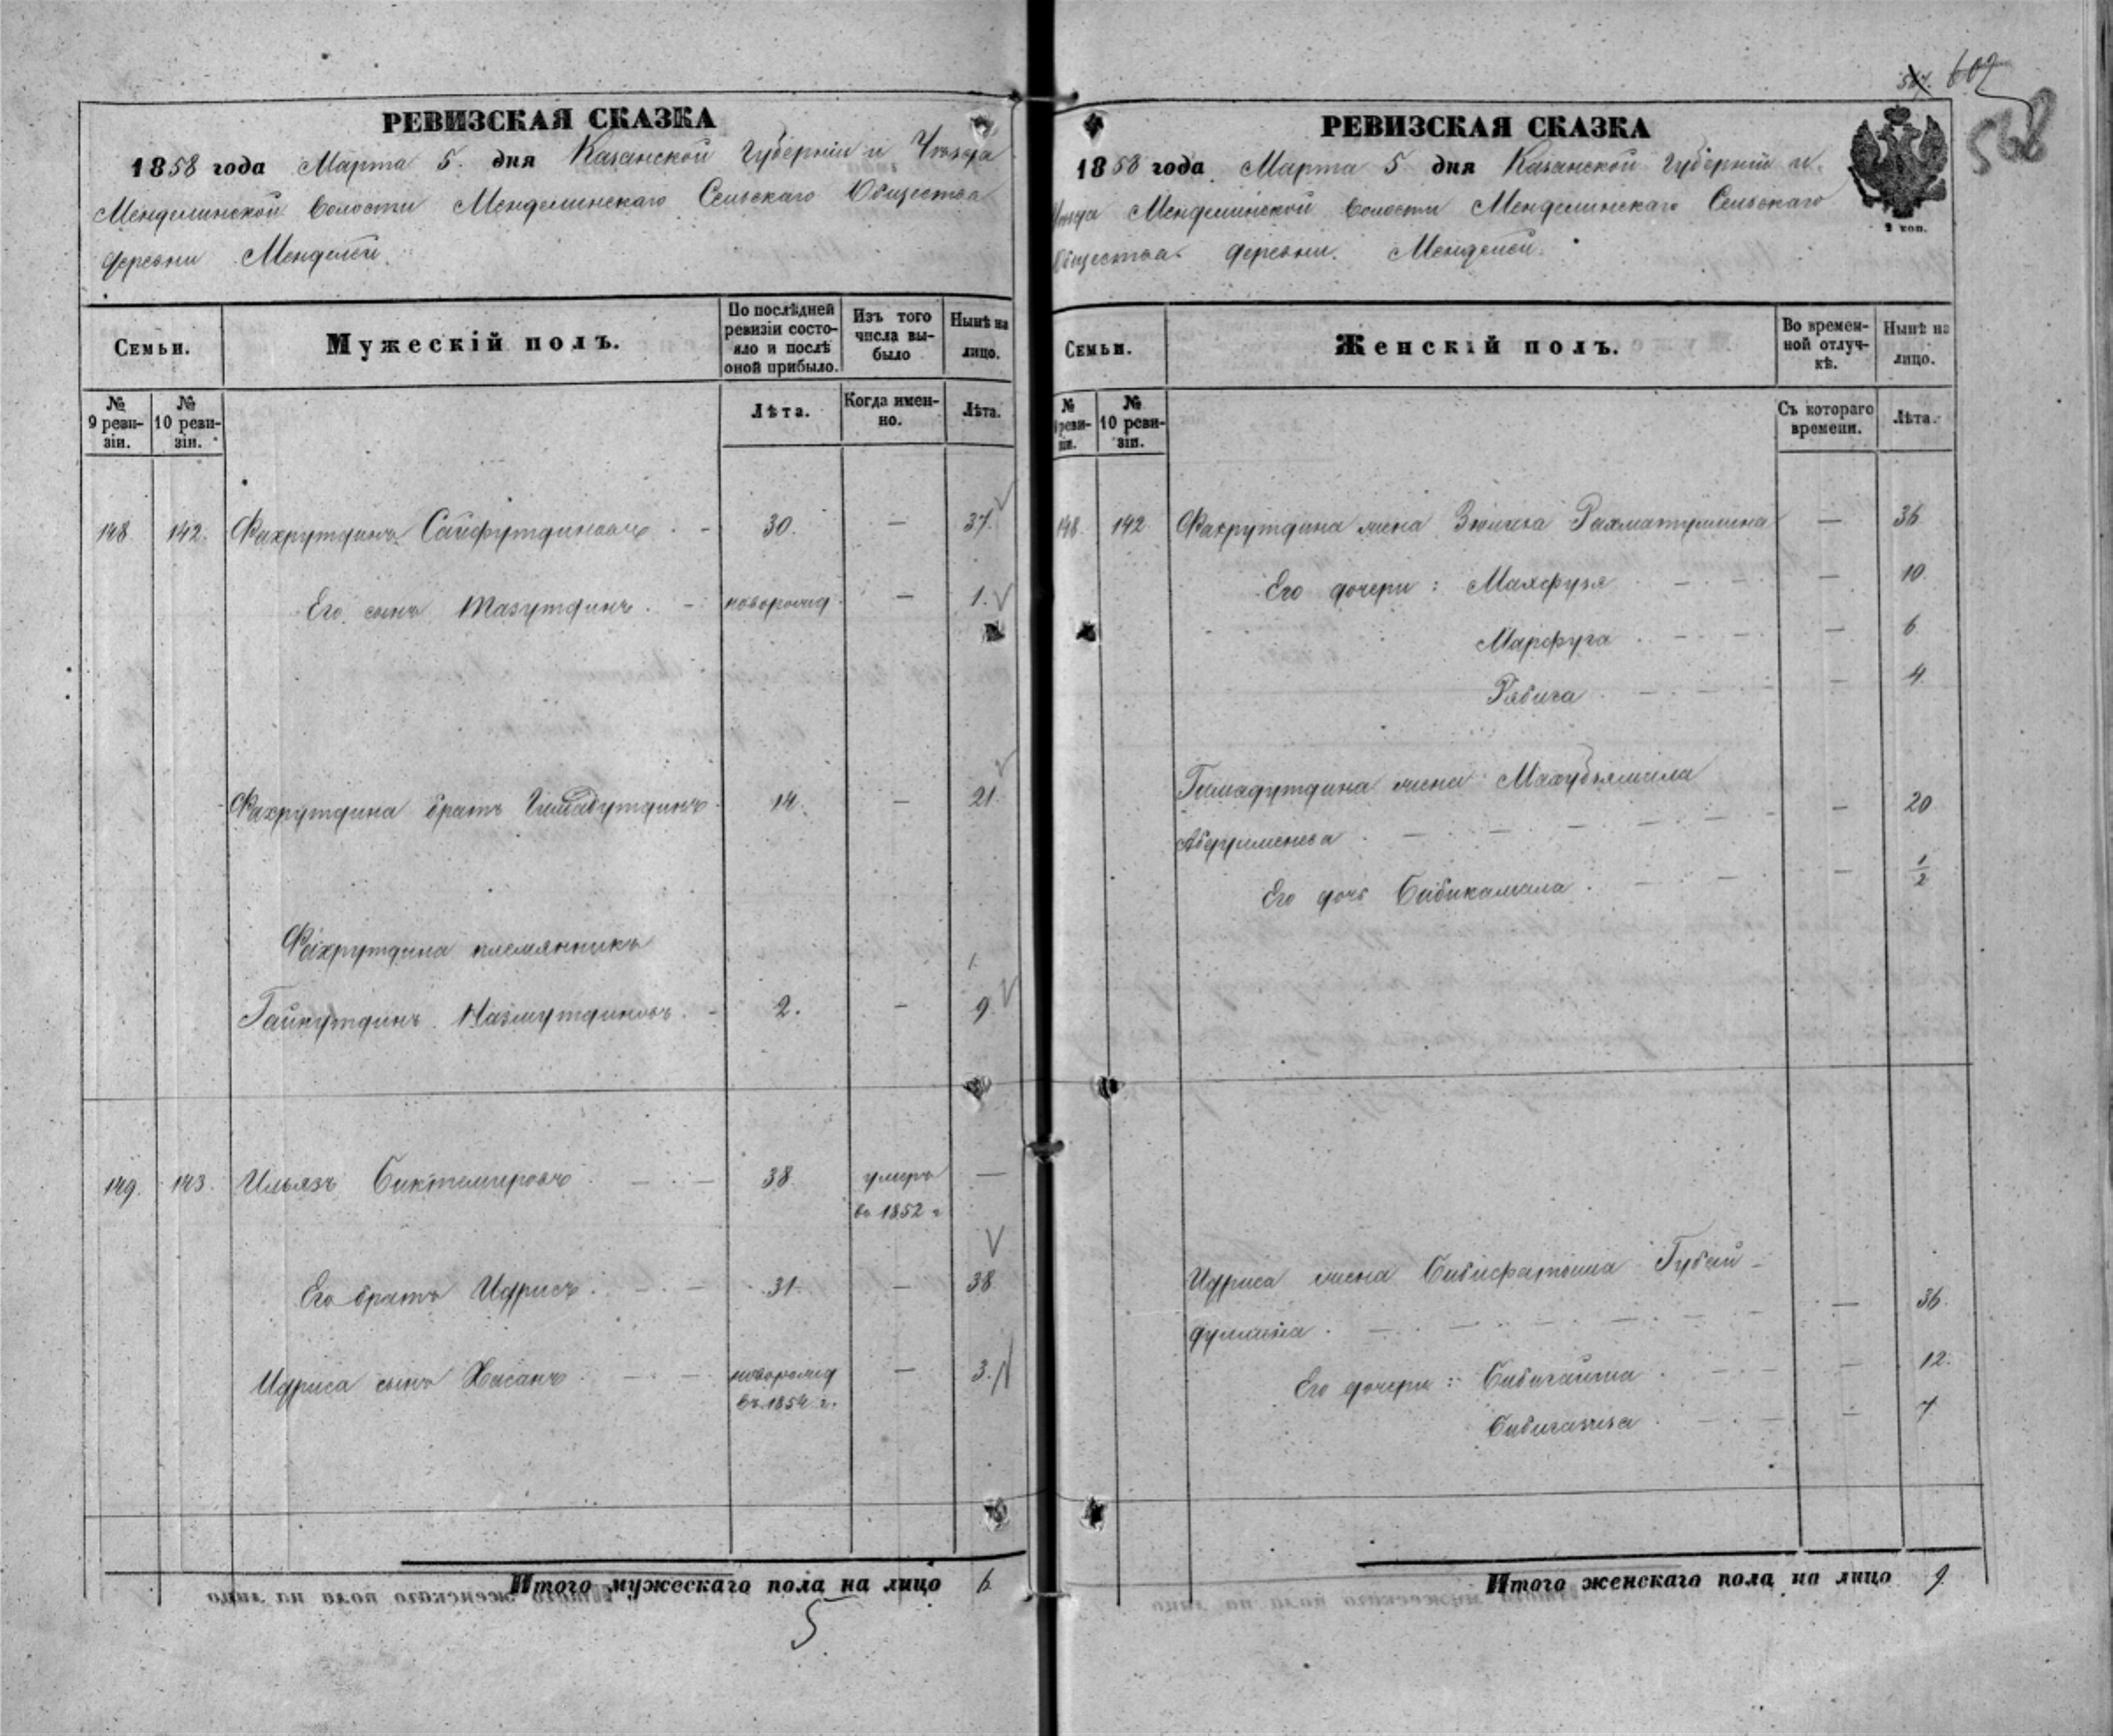 РЕВИЗСКАЯ СКАЗКА
1858 года Марта 5. дня Казанской Губерніи и Уѣзда
Менделинской Волости Менделинскаго Сельскаго Общества
деревни Менделей.
Семьи.
Мужескій полъ.
По послѣдней ревизіи состояло и послѣ оной прибыло.
Изъ того числа выбыло
Нынѣ на лицо.
№ 9 ревизіи.
№ 10 ревизіи.
Лѣта.
Когда именно.
Лѣта.
148. 142. Фахрутдинъ Сайфутдиновъ 30. — 37.
Его сынъ Тазутдинъ новорожд. — 1.
Фахрутдина братъ 14. — 21.
Фахрутдина племянникъ
Гайнутдинъ Назмутдиновъ 2. — 9
149. 143. Ильязъ Биктемировъ 38. умеръ —
въ 1852 г
Его братъ Идрисъ 31. — 38
Идриса сынъ Хасанъ новорожд — 3.
въ 1854 г.
Итого мужескаго пола на лицо 6.
5
567. 607
568
РЕВИЗСКАЯ СКАЗКА
1858 года Марта 5 дня Казанской Губерніи и
Уѣзда Менделинской Волости Менделинскаго Сельскаго
Общества деревни Менделей.
2 коп.
Семьи.
Женскій полъ.
Во временной отлучкѣ.
Нынѣ на лицо.
№ 9 ревизіи.
№ 10 ревизіи.
Съ котораго времени.
Лѣта.
148. 142 Фахрутдина жена Рахматуллина — 36
Его дочери: Махфузя — 10.
Марфуга — 6
Рябига — 4.
Гимадутдина жена
— 20
Его дочь Бибикамала — 1/2
Идриса жена Бибифатыма Губай-
дуллина — 36.
Его дочери: Бибигайша — 12.
Бибигазиза — 7
Итого женскаго пола на лицо 9.